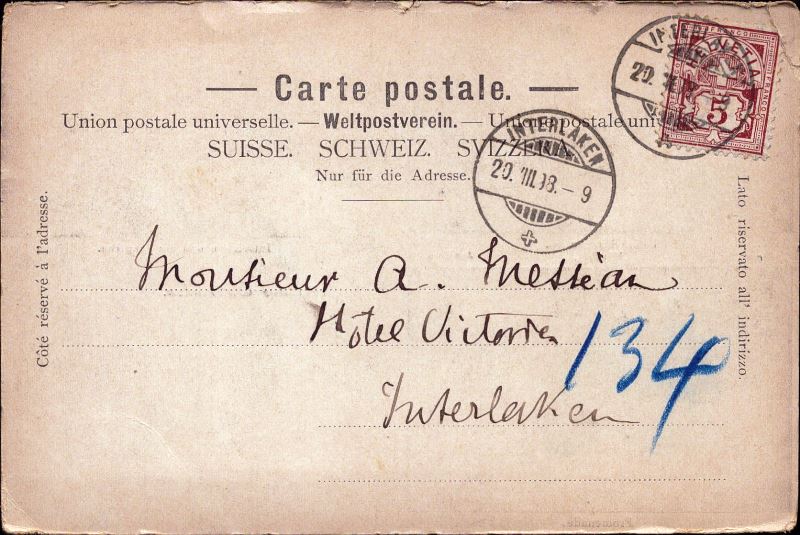 Carte postale.
Union postale universelle. — Weltpostverein. — Unione postale
SUISSE. SCHWEIZ. SVIZZERA.
Nur für die Adresse.
Côté réservé à l'adresse.
Lato riservato all' indirizzo.
HELVETIA
FRANCO
5
INTERLAKEN
29. VIII.98.–9
Monsieur A. Messéan
Hôtel Victoria
Interlaken
134
Promenade.